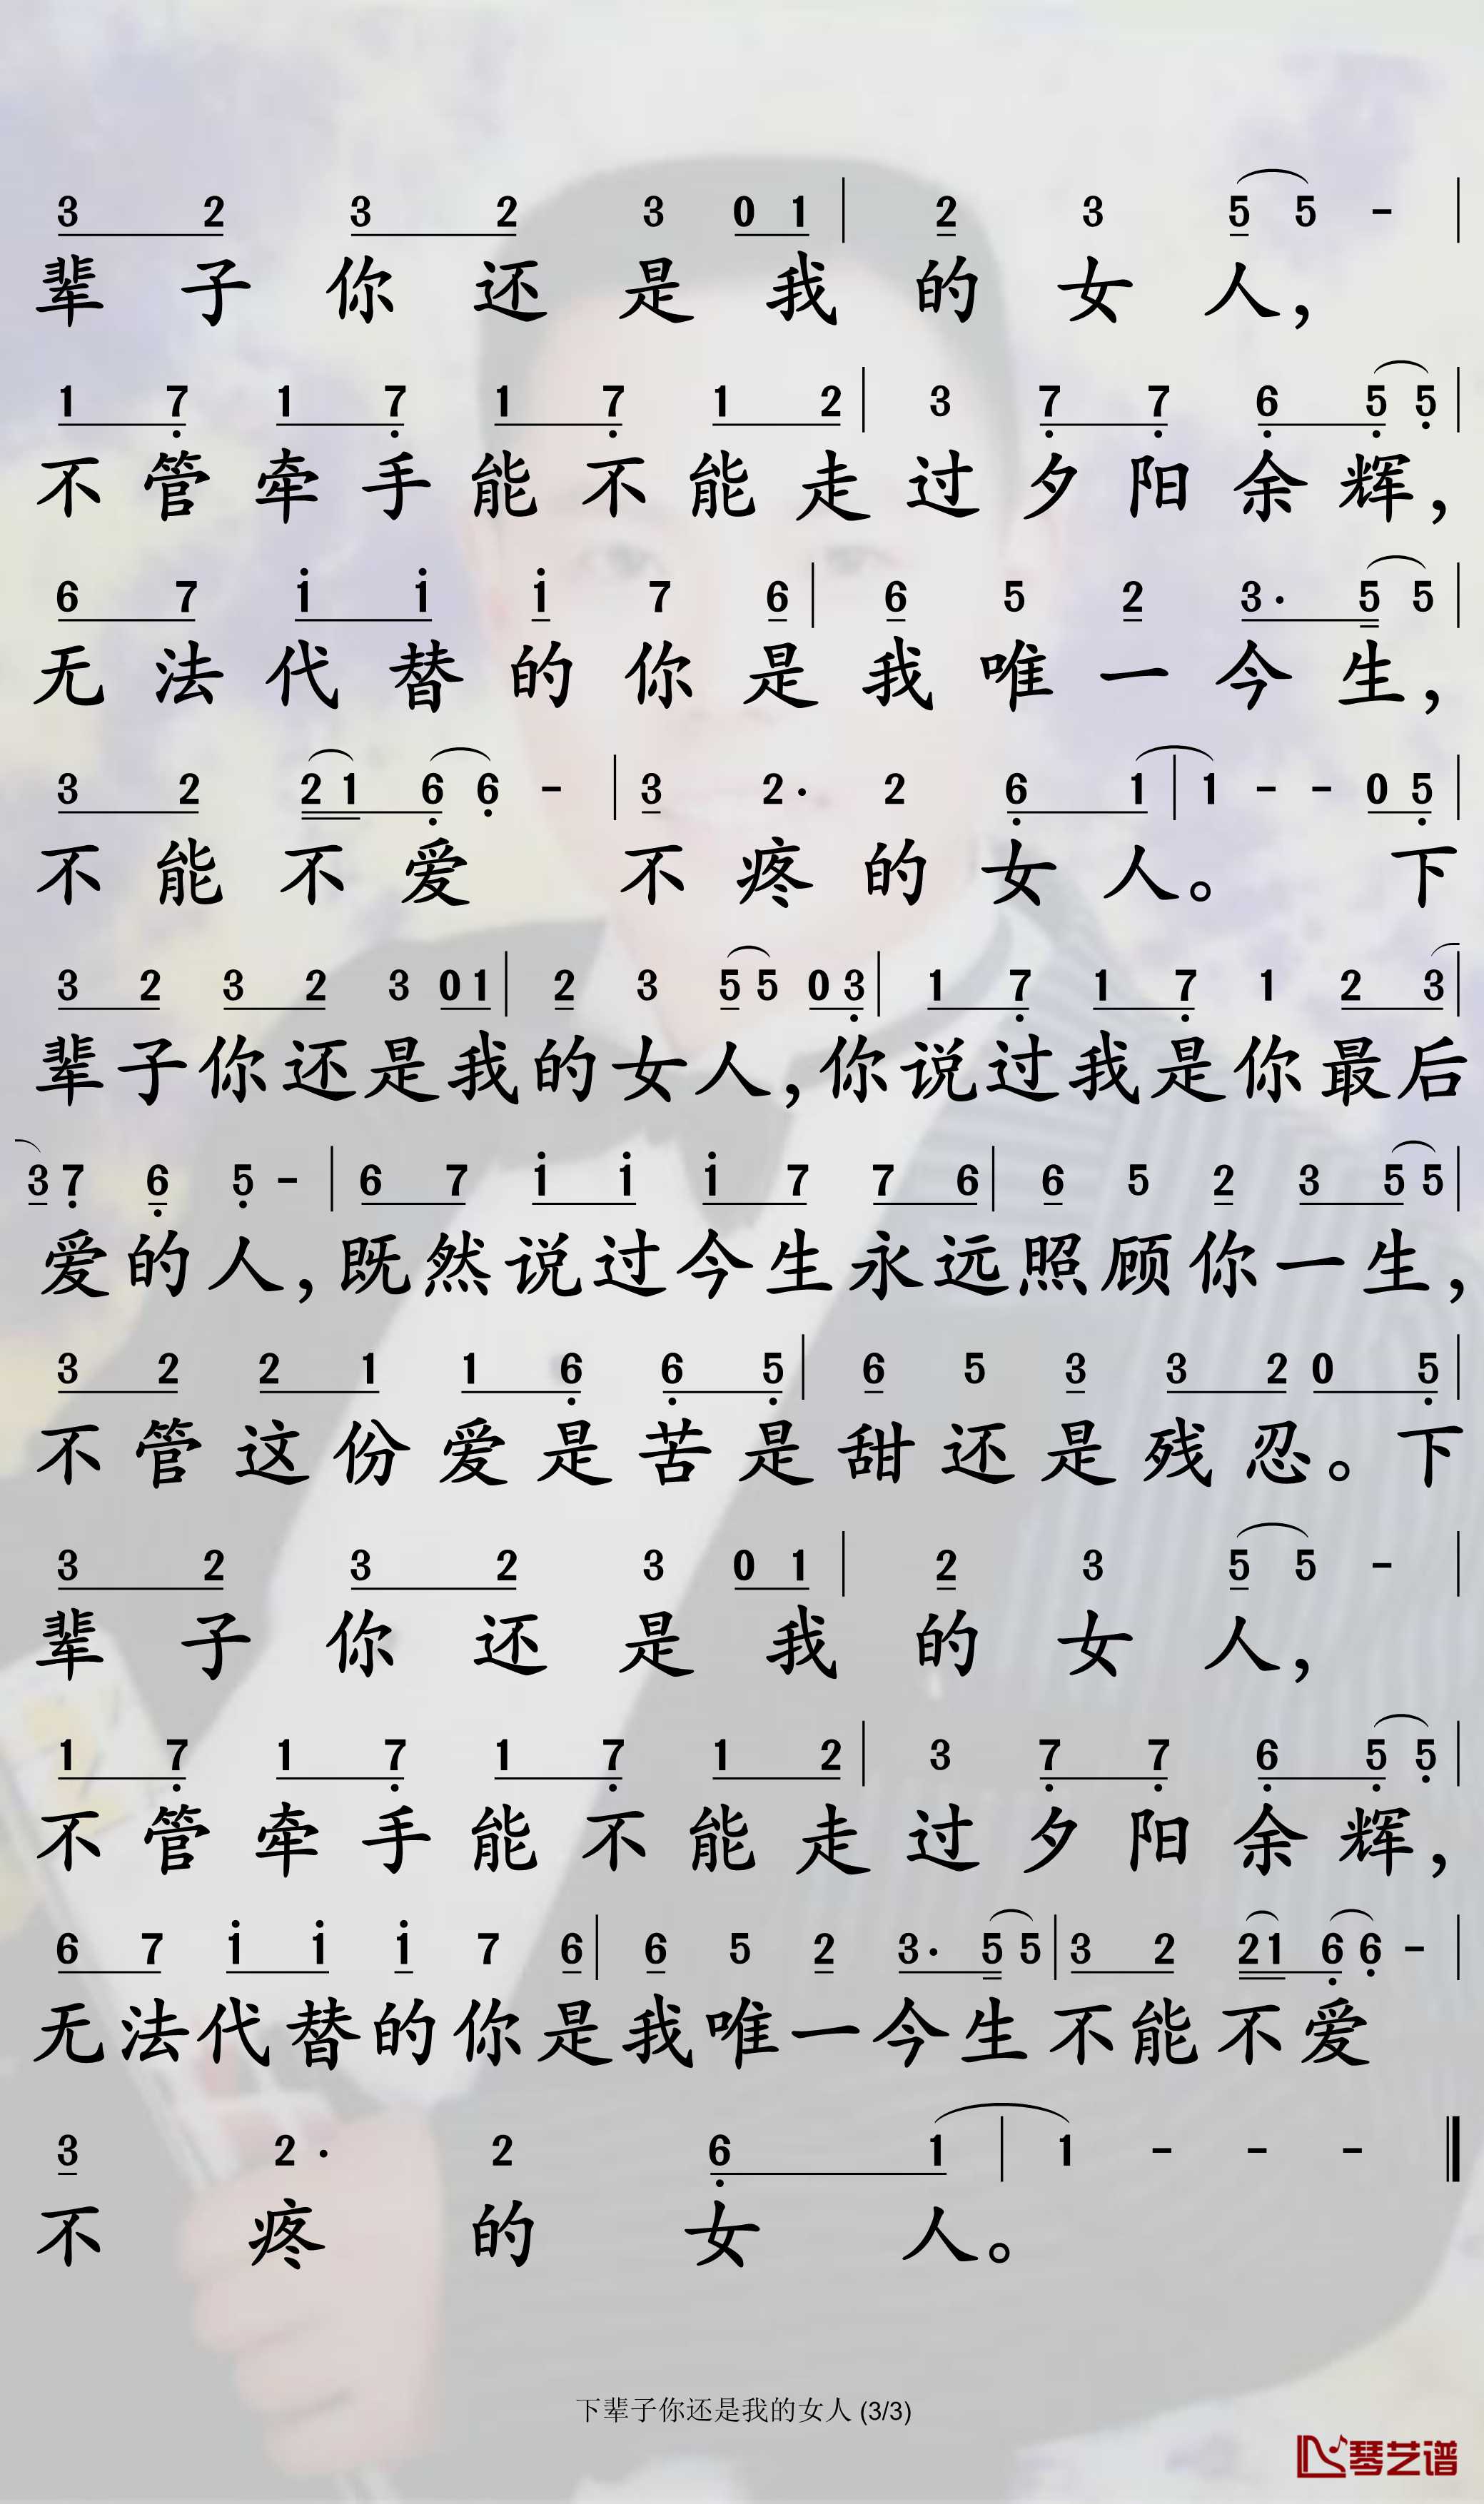 3 2 3 2 3 0 1 | 2 3 5 5 - |
辈子你还是我的女人，
1 7̣ 1 7̣ 1 7̣ 1 2 | 3 7̣ 7̣ 6̣ 5̣ 5̣ |
不管牵手能不能走过夕阳余辉，
6 7 i i i 7 6 | 6 5 2 3· 5 5 |
无法代替的你是我唯一今生，
3 2 2 1 6̣ 6̣ - | 3 2· 2 6̣ 1 | 1 - - 0 5̣ |
不能不爱 不疼的女人。 下
3 2 3 2 3 0 1 | 2 3 5 5 0 3̣ | 1 7̣ 1 7̣ 1 2 3 |
辈子你还是我的女人，你说过我是你最后
3 7̣ 6̣ 5̣ - | 6 7 i i i 7 7 6 | 6 5 2 3 5 5 |
爱的人，既然说过今生永远照顾你一生，
3 2 2 1 1 6̣ 6̣ 5̣ | 6 5 3 3 2 0 5̣ |
不管这份爱是苦是甜还是残忍。下
3 2 3 2 3 0 1 | 2 3 5 5 - |
辈子你还是我的女人，
1 7̣ 1 7̣ 1 7̣ 1 2 | 3 7̣ 7̣ 6̣ 5̣ 5̣ |
不管牵手能不能走过夕阳余辉，
6 7 i i i 7 6 | 6 5 2 3· 5 5 | 3 2 2 1 6̣ 6̣ - |
无法代替的你是我唯一今生不能不爱
3 2· 2 6̣ 1 | 1 - - - ‖
不疼的女人。
下辈子你还是我的女人 (3/3)
琴艺谱